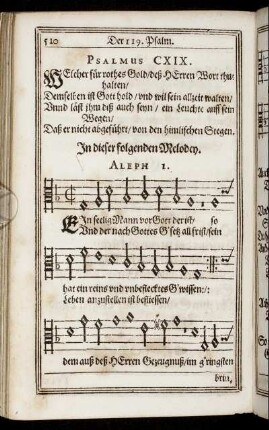 520 Der 119. Psalm.
PSALMUS CXIX.
WElcher für rothes Gold/deß HErren Wort thu
halten/
Demselben ist Gott hold/ und wil sein allzeit walten/
Vnnd läst ihm diß auch seyn / ein Leuchte auff sein
Wegen/
Daß er nicht abgeführt/ von den himlischen Stegen.
In dieser folgenden Melodey.
ALEPH 1.
EIn seelig Mann vor Gott der ist/ so
Vnd der nach Gottes G'setz all frist/sein
hat ein reins und unbeflecktes G'wissen/:
Leben anzustellen ist beflissen/
dem auß deß HErren Gezeugnuß/im g'ringsten